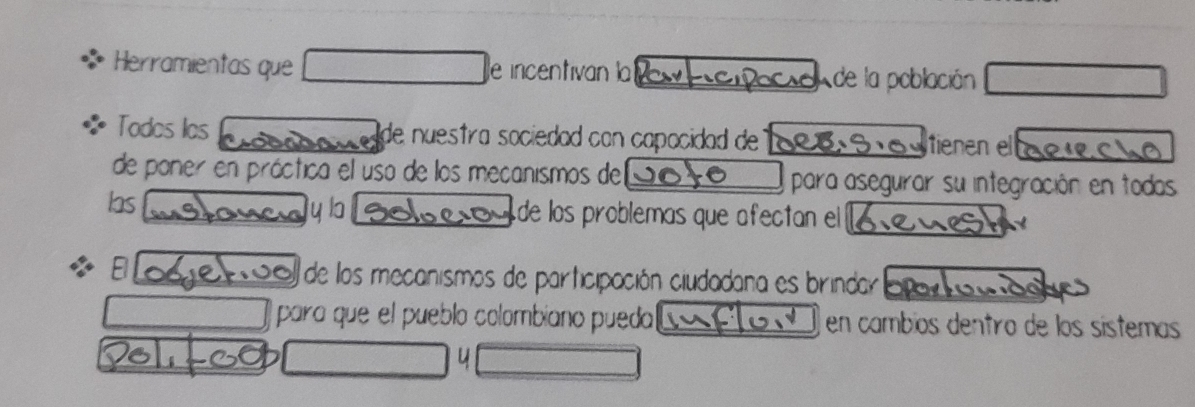 ❖ Herramientas que e incentivan la Participación de la población
❖ Todos los ciudadanos de nuestra sociedad con capacidad de decisión tienen el derecho
de poner en práctica el uso de los mecanismos de voto para asegurar su integración en todas
las instancia y la solucion de los problemas que afectan el bienestar
❖ El objetivo de los mecanismos de participación ciudadana es brindar oportunidades
para que el pueblo colombiano pueda influir en cambios dentro de los sistemas
politico y